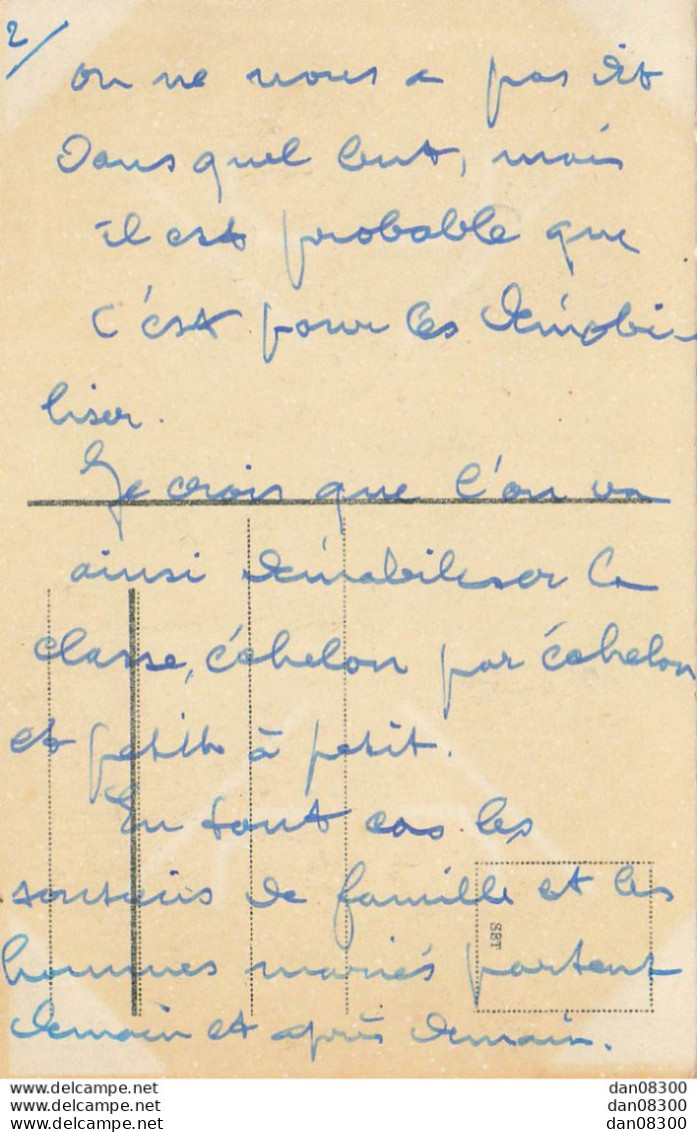 2/
on ne nous a pas dit
dans quel but, mais
il est probable que
c'est pour les démobi-
liser.
Je crois que l'on va
ainsi démobiliser la
classe, échelon par échelon
et petit à petit.
En tout cas les
soutiens de famille et les
hommes mariés partent
demain et après demain.
S8T
www.delcampe.net
www.delcampe.net
www.delcampe.net
dan08300
dan08300
dan08300